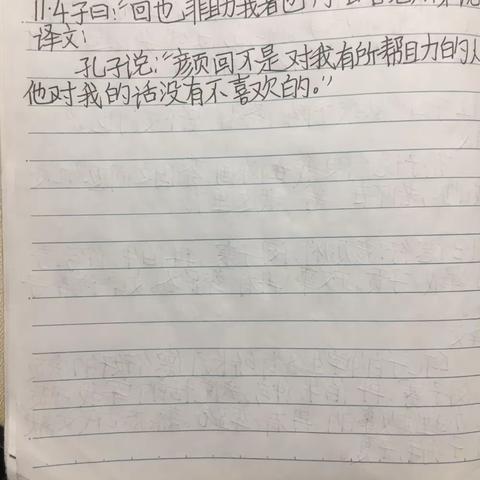 11.4子曰:“回也,非助我者也,于
译文:
孔子说:“颜回不是对我有所帮助的人
他对我的话没有不喜欢的。”